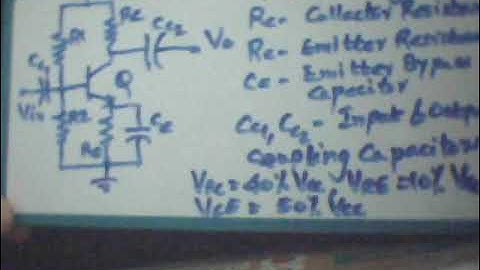 Rc
R1
Cc1
Cc2
Vo
Q
Vin
R2
RE
CE
Rc - Collector Resistan
RE - Emitter Resistan
CE - Emitter Bypass
Capacitor
Cc1, Cc2 - Input & Output
Coupling Capacitors
VRC = 40% Vcc VRE = 10% Vcc
VCE = 50% Vcc